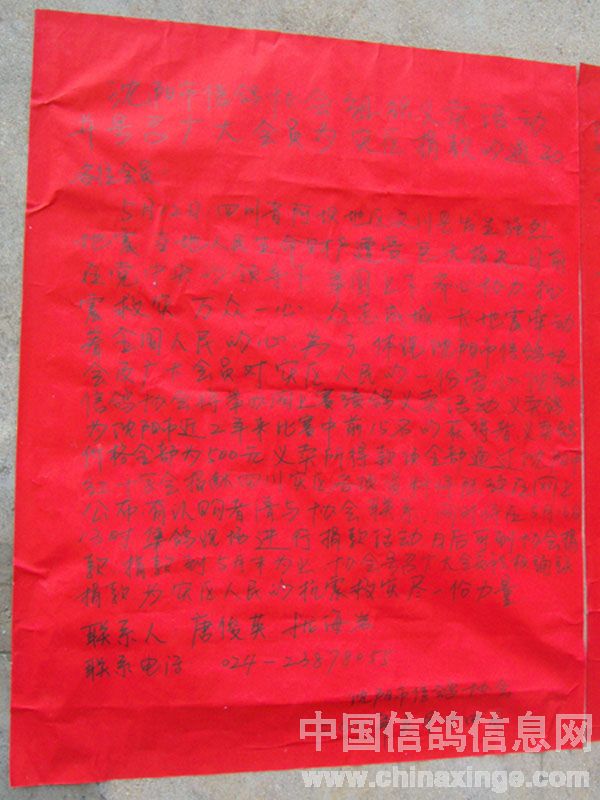 沈阳市信鸽协会组织义卖活动
并号召广大会员为灾区捐款的通知
各位会员:
5月12日四川省阿坝地区汶川县发生强烈
地震 当地人民生命财产遭受巨大损失 目前
在党中央的领导下 全国上下齐心协力抗
震救灾 万众一心 众志成城 大地震牵动
着全国人民的心 为了体现沈阳市信鸽协
会及广大会员对灾区人民的一份爱心 沈阳市
信鸽协会将举办网上赛绩鸽义卖活动 义卖鸽
为沈阳市近2年来比赛中前15名的获得者 义卖鸽
价格全部为500元 义卖所得款项全部通过沈阳市
红十字会捐献四川灾区 在网上
公布 有认购者请与协会联系 同时将在5月
时集鸽现场进行捐款活动 日后可到协会捐
款 捐款到5月末为止 协会号召广大会员踊跃
捐款 为灾区人民的抗震救灾尽一份力量
联系人: 唐俊英 海岩
联系电话 024-23878055
沈阳市信鸽协会
中国信鸽信息网
www.chinaxinge.com